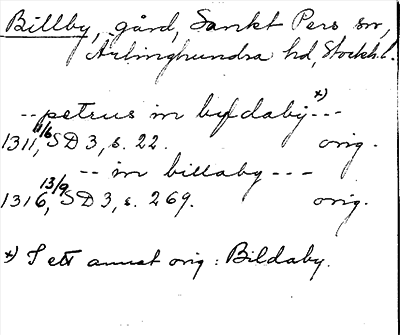 Billby, gård, Sankt Pers sn,
Ärlinghundra hd, Stockh.l.
-- petrus in byldaby x) ---
1311 11/6, SD 3, s. 22. orig.
-- in billaby ---
1316 13/9, SD 3, s. 269. orig.
x) I ett annat orig: Bildaby.